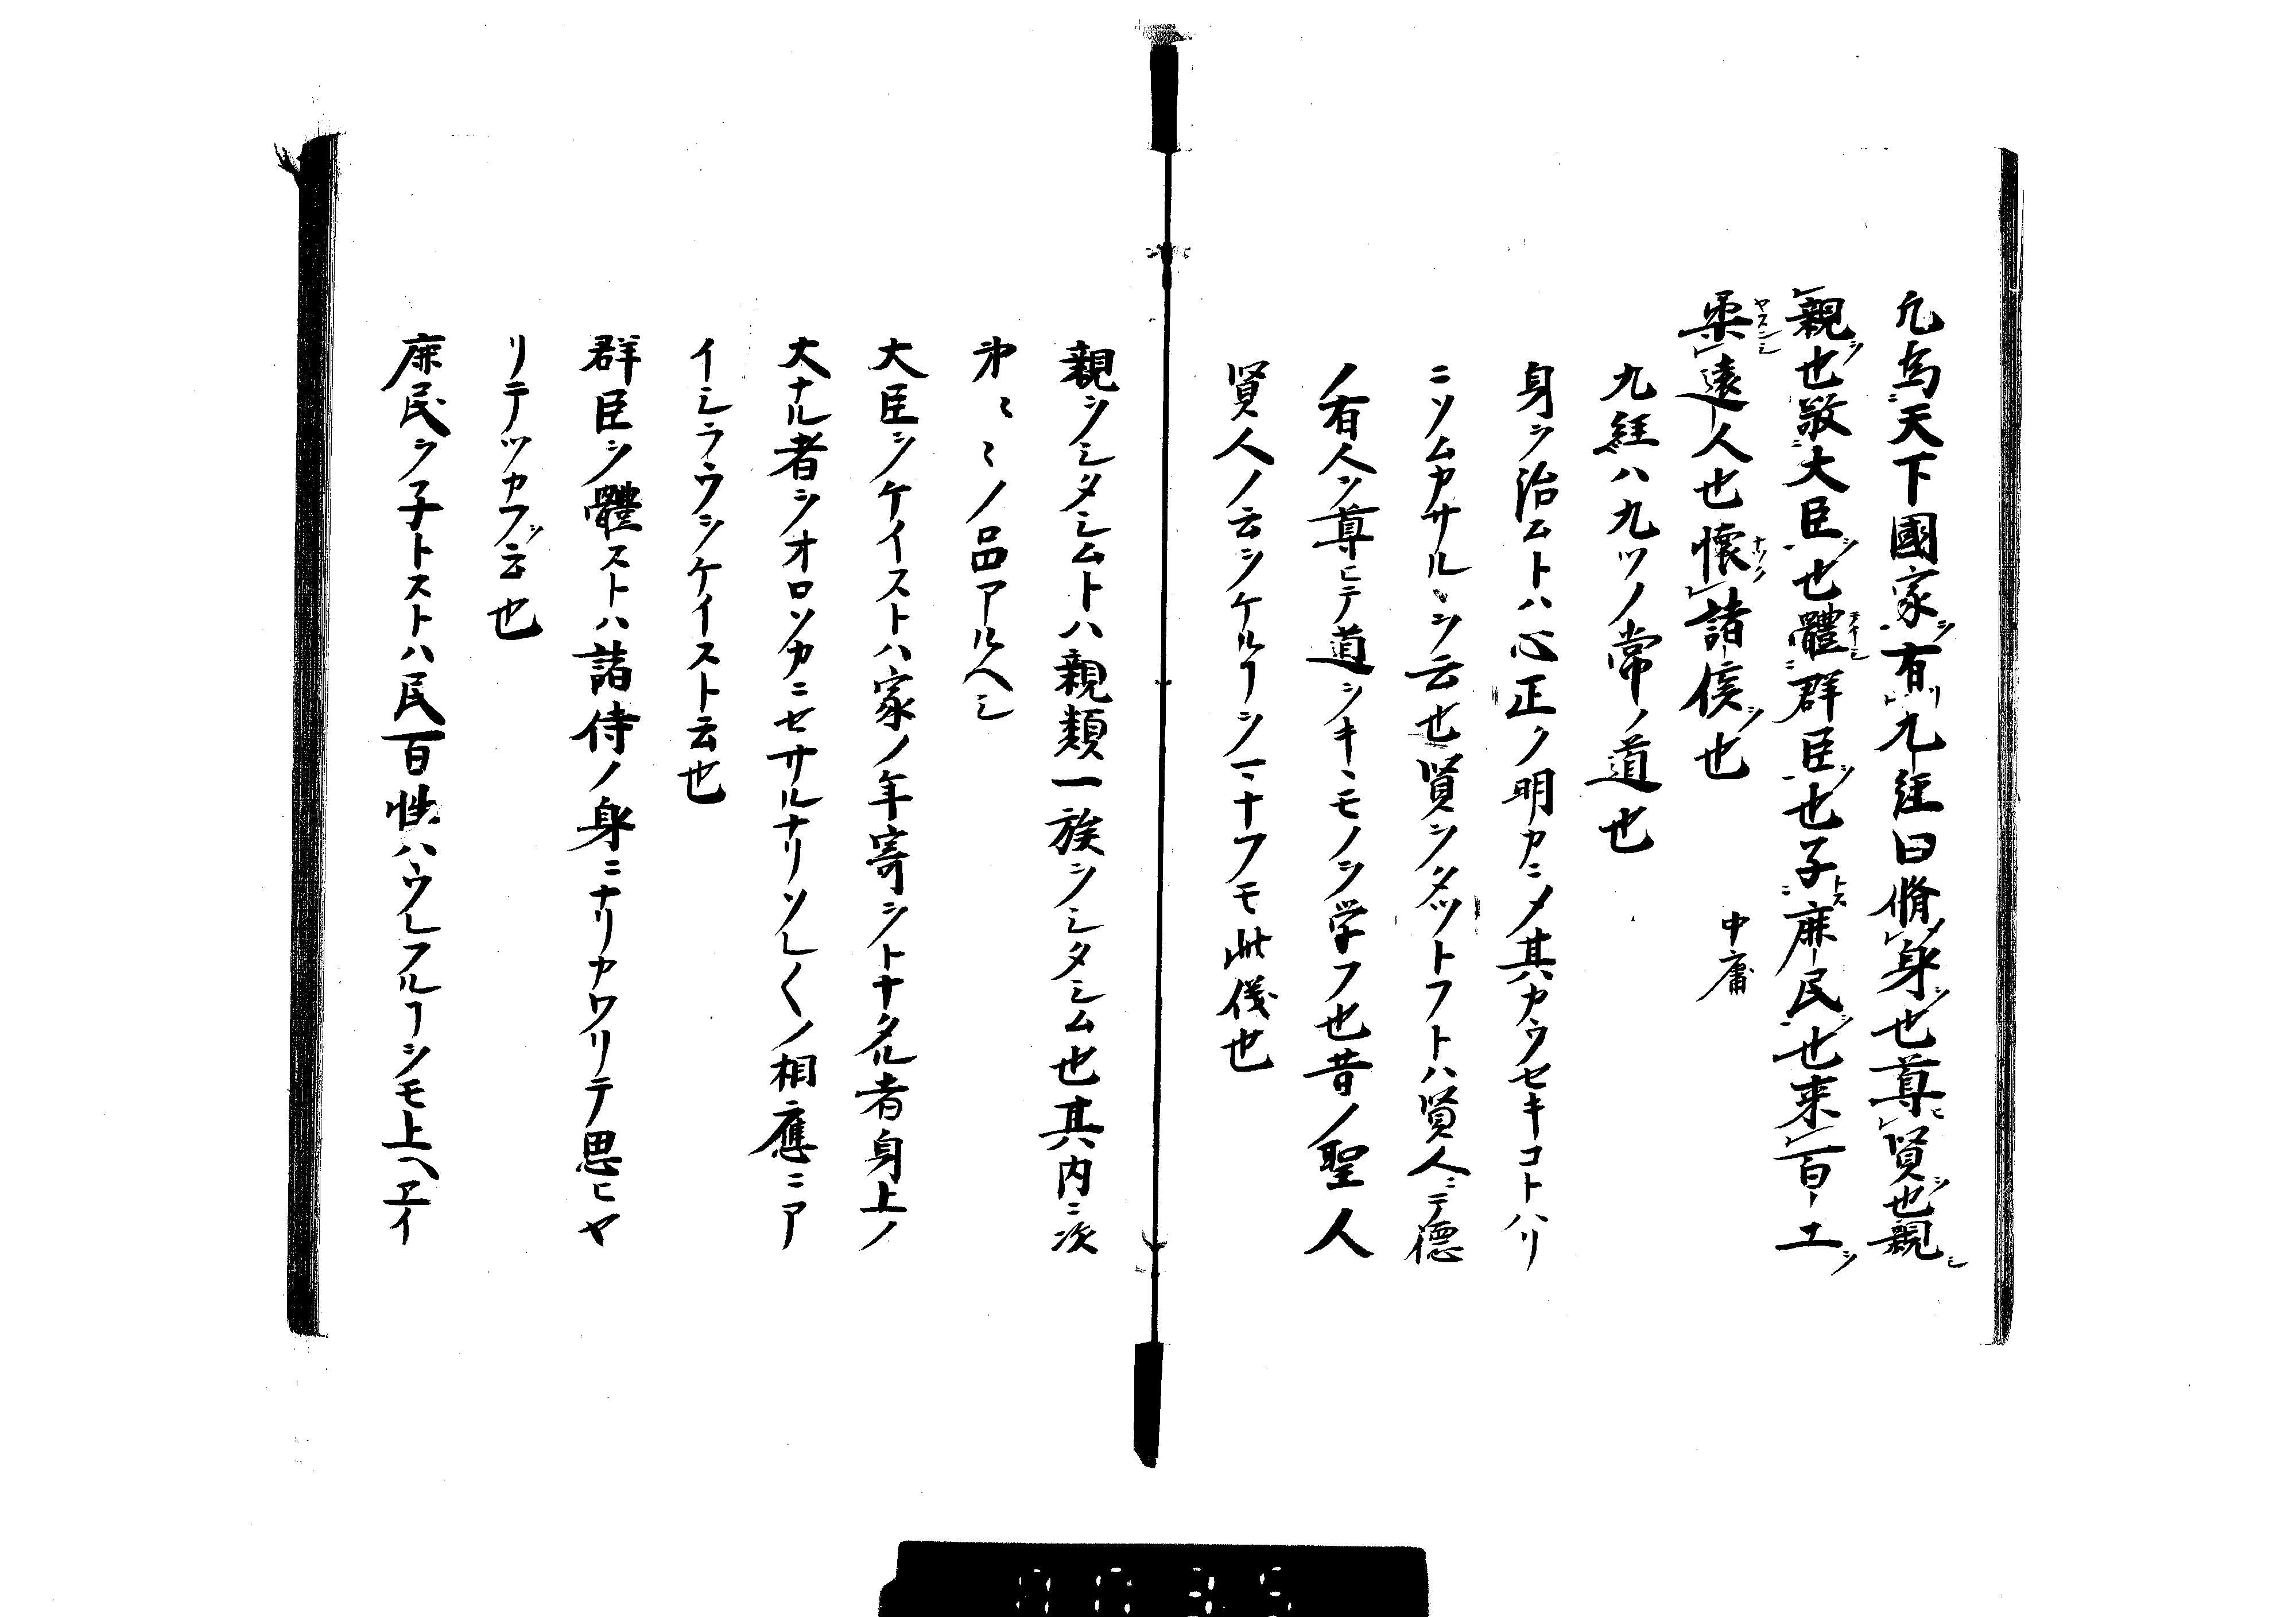 凡為天下國家有九経曰脩身也尊賢也親
親也敬大臣也體群臣也子庶民也来百工
柔遠人也懐諸侯也 中庸
九経ハ九ツノ常ノ道也
身ヲ治ムトハ心正ク明カニメ其カウセキコトハリ
ニソムカサルヲ云也賢ヲタツトフトハ賢人ニテ德
ノ有人ヲ尊ヒテ道ヲキヽモノヲ学フ也昔ノ聖人
賢人ノ云ヲケルヿヲマナフモ此儀也
親ヲシタシムトハ親類一族ヲシタシム也其内ニ次
第〻〻ノ品アルヘシ
大臣ヲケイストハ家ノ年寄ヲトナタル者身上ノ
大ナル者ヲオロソカニセサルナリソレ〱ノ相應ニア
イシラウヲケイスト云也
群臣ヲ體ストハ諸侍ノ身ニナリカワリテ思ヒヤ
リテツカフヲ云也
庶民ヲ子トストハ民百性ハウレフルヿヲモ上ヘヱイ